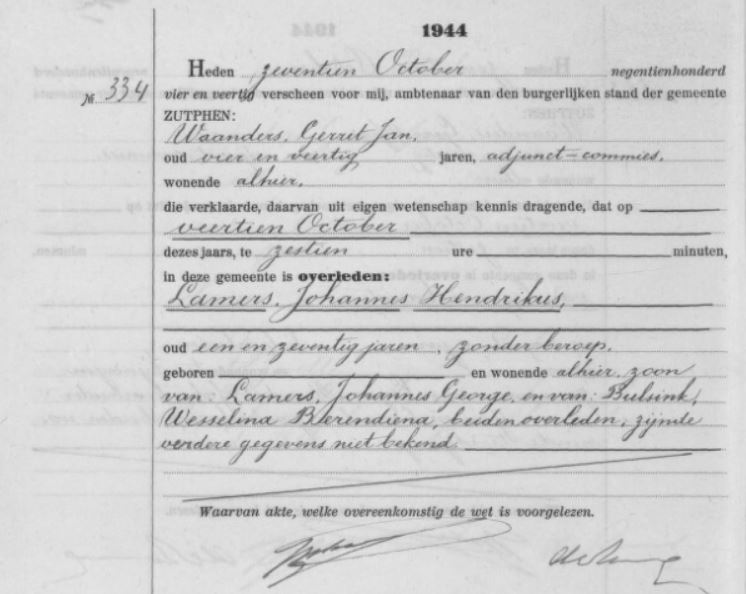 1944
Heden zeventien October negentienhonderd
№ 334 vier en veertig verscheen voor mij, ambtenaar van den burgerlijken stand der gemeente
ZUTPHEN:
Waanders, Gerret Jan,
oud vier en veertig jaren, adjunct=commies,
wonende alhier,
die verklaarde, daarvan uit eigen wetenschap kennis dragende, dat op
veertien October
dezes jaars, te zestien ure minuten,
in deze gemeente is overleden:
Lamers, Johannes Hendrikus,
oud een en zeventig jaren, zonder beroep,
geboren en wonende alhier, zoon
van: Lamers, Johannes George, en van: Bulsink,
Wesselina Berendiena, beiden overleden; zijnde
verdere gegevens niet bekend.
Waarvan akte, welke overeenkomstig de wet is voorgelezen.